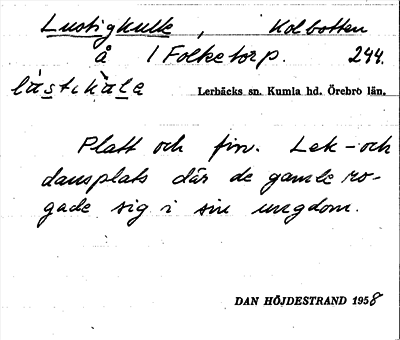 Lustigkulle, Kolbotten
å 1 Folketorp. 244.
Lerbäcks sn. Kumla hd. Örebro län.
Platt och fin. Lek- och
dansplats där de gamle ro-
gade sig i sin ungdom.
DAN HÖJDESTRAND 1958